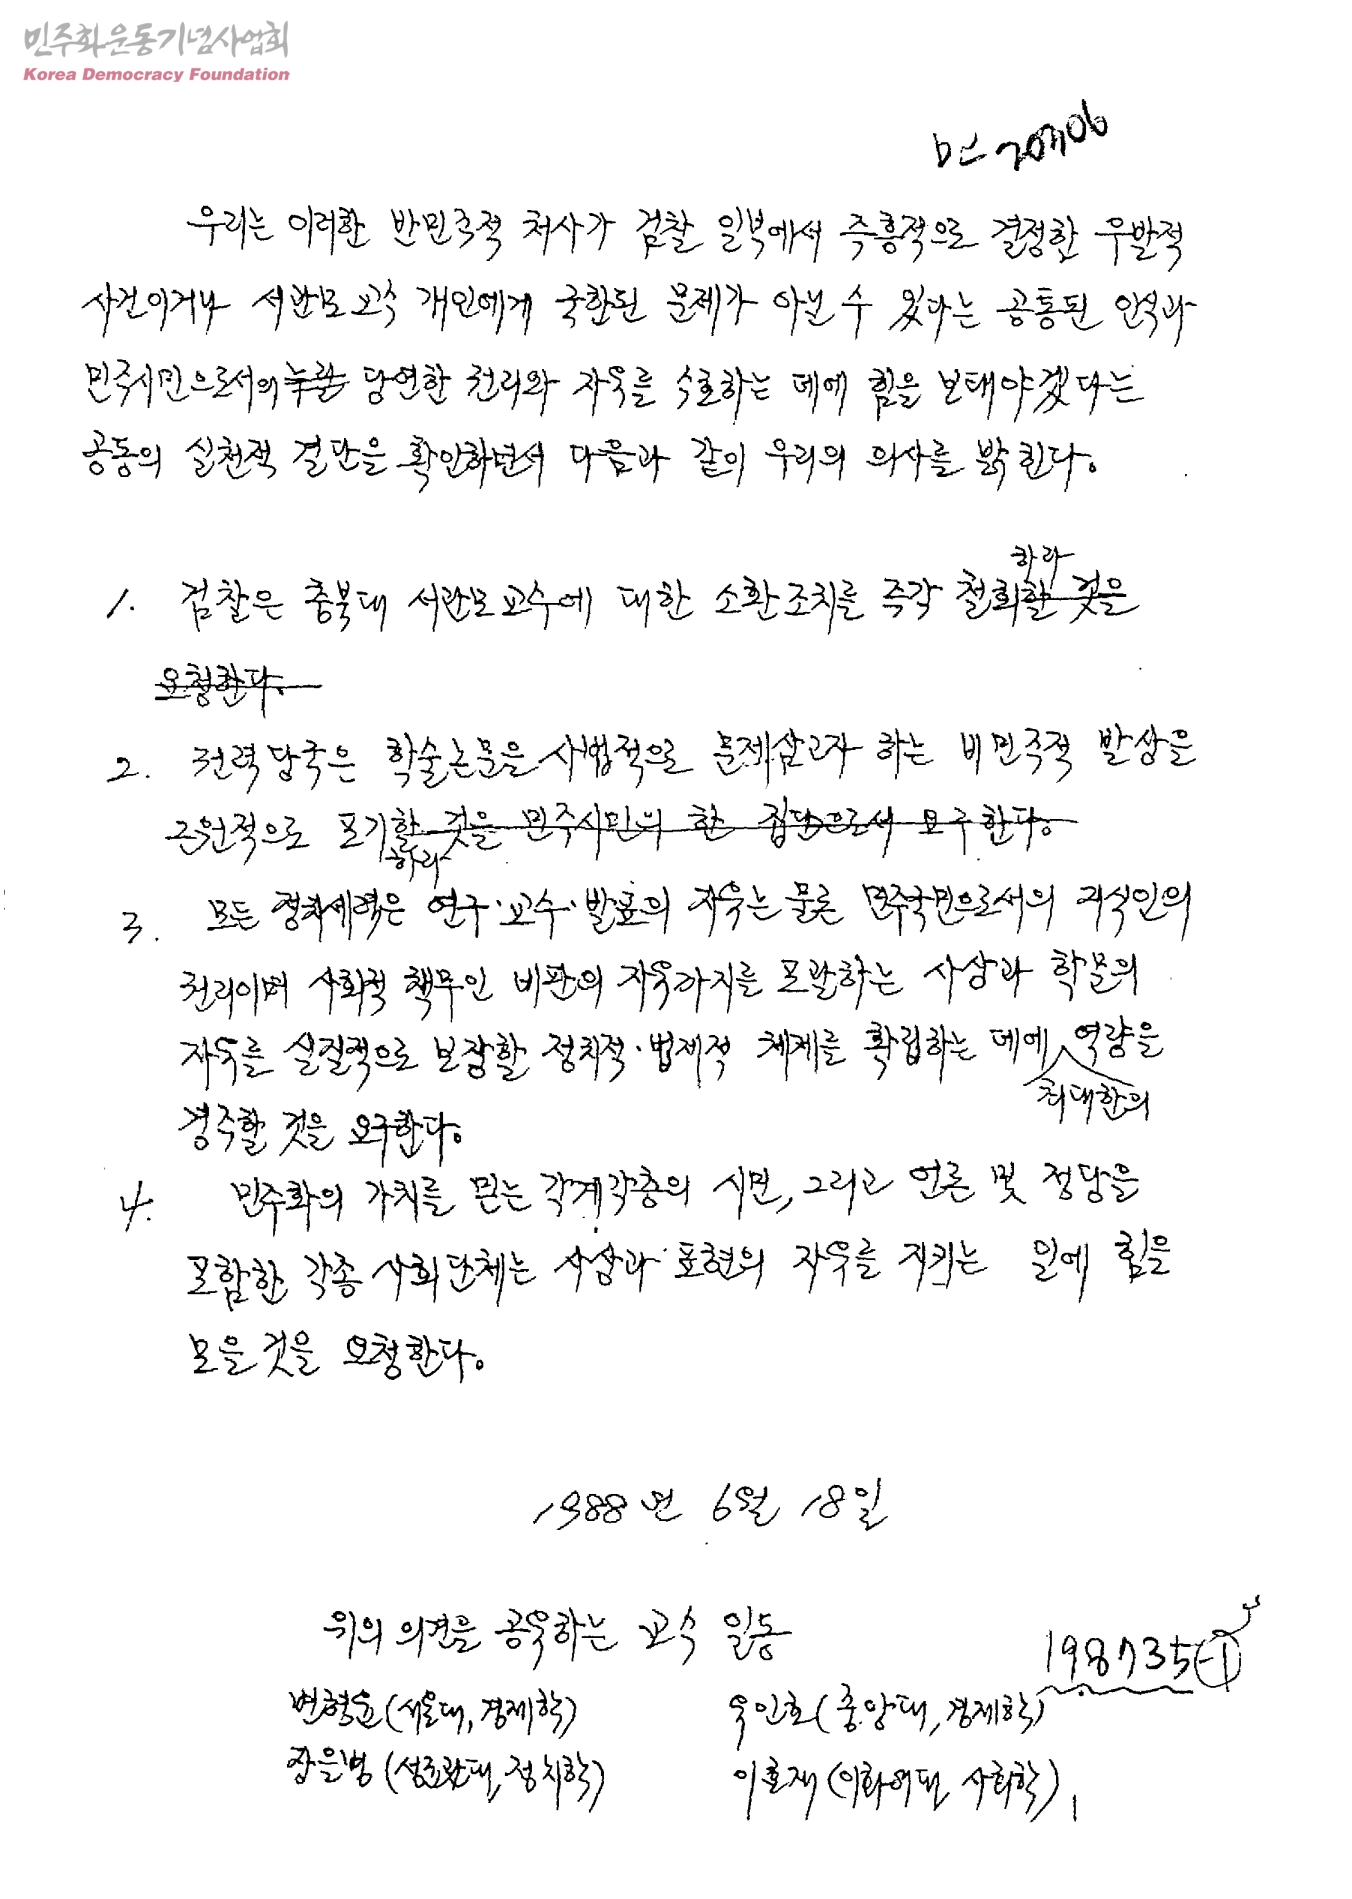 민주화운동기념사업회
Korea Democracy Foundation
우리는 이러한 반민주적 처사가 검찰 일부에서 즉흥적으로 결정한 우발적
사건이거나 서관모 교수 개인에게 국한된 문제가 아닐 수 있다는 공통된 인식과
민주시민으로서의 당연한 권리와 자유를 수호하는 데에 힘을 보태야겠다는
공동의 실천적 결단을 확인하면서 다음과 같이 우리의 의사를 밝힌다.
하라
1. 검찰은 충북대 서관모 교수에 대한 소환조치를 즉각 철회할 것을
요청한다.
2. 권력당국은 학술논문을 사법적으로 문제삼고자 하는 비민주적 발상을
근원적으로 포기할 것을 민주시민의 한 집단으로서 요구한다.
하라
3. 모든 정치세력은 연구·교수·발표의 자유는 물론 민주국민으로서의 지식인의
권리이며 사회적 책무인 비판의 자유까지를 포괄하는 사상과 학문의
자유를 실질적으로 보장할 정치적·법제적 체계를 확립하는 데에 역량을
최대한의
경주할 것을 요구한다.
4. 민주화의 가치를 믿는 각계각층의 시민, 그리고 언론 및 정당을
포함한 각종 사회단체는 사상과 표현의 자유를 지키는 일에 힘을
모을 것을 요청한다.
1988년 6월 18일
위의 의견을 공유하는 교수 일동
198735-1
변형윤 (서울대, 경제학) 유인호 (중앙대, 경제학)
장을병 (성균관대, 정치학) 이효재 (이화여대, 사회학)